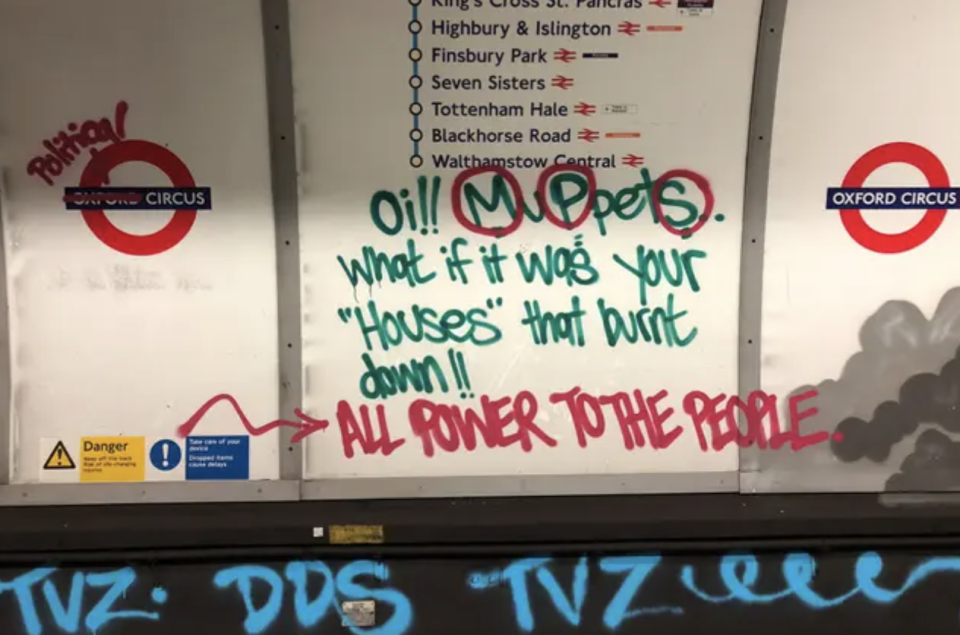 King's Cross St. Pancras
Highbury & Islington
Finsbury Park
Seven Sisters
Tottenham Hale
Blackhorse Road
Walthamstow Central
Political
OXFORD CIRCUS
OXFORD CIRCUS
Oi!! MuPpetS..
What if it was your
"Houses" that burnt
down!!
ALL POWER TO THE PEOPLE.
Danger
Keep off the track
Risk of life-changing
injuries
Take care of your
device
Dropped items
cause delays
TVZ. DDS TVZ